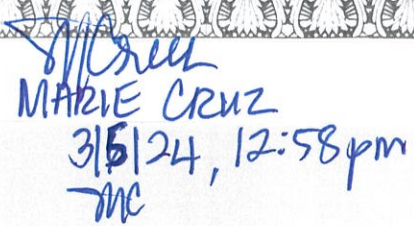 MCruz
MARIE CRUZ
3/5/24, 12:58pm
MC